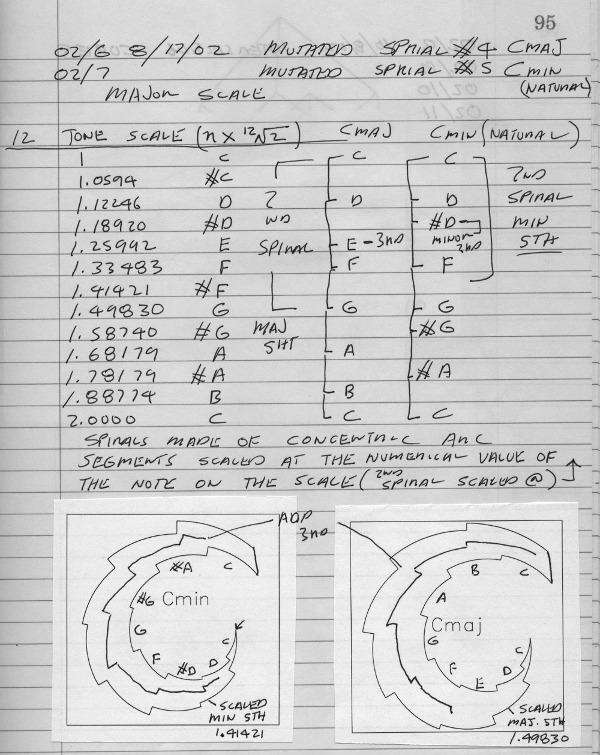 95
02/6 8/17/02 MUTATED SPRIAL #4 CMAJ
02/7 MUTATED SPRIAL #5 CMIN
(NATURAL)
MAJOR SCALE
12 TONE SCALE (n x 12√2) CMAJ CMIN (NATURAL)
1 C C C 2ND
1.0594 #C
1.12246 D 2 D D SPIRAL
1.18920 #D ND #D MIN
1.25992 E SPIRAL E-3ND MINOR 2ND 5TH
1.33483 F F F
1.41421 #F
1.49830 G G G
1.58740 #G MAJ #G
1.68179 A 5HT A
1.78179 #A #A
1.88774 B B
2.0000 C C C
SPIRALS MADE OF CONCENTRIC ARC
SEGMENTS SCALED AT THE NUMERICAL VALUE OF
THE NOTE ON THE SCALE (2ND SPIRAL SCALED @)
ADD
3ND
#A C
#G Cmin
G C
F #D D
SCALED
MIN 5TH
1.41421
B C
A
Cmaj
G C
F E D
SCALED
MAJ. 5TH
1.49830